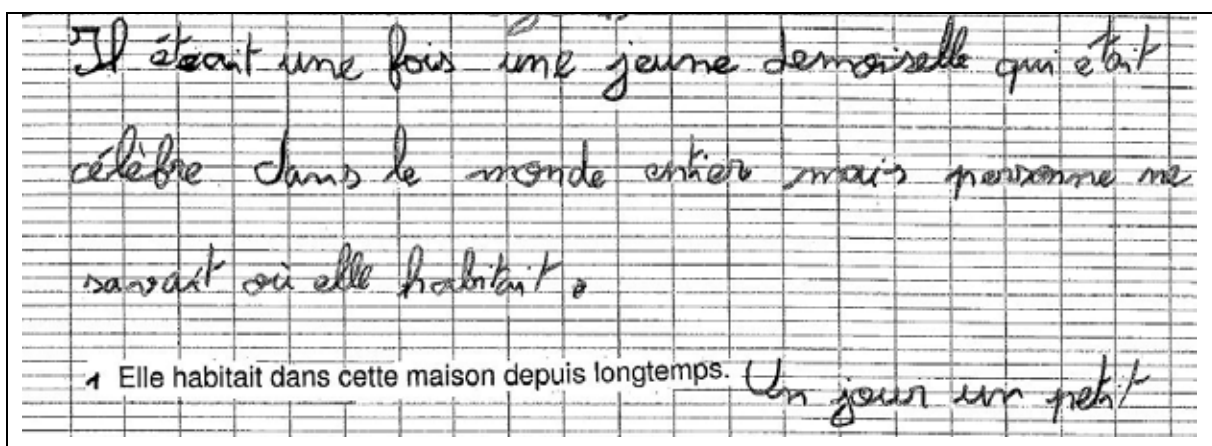 Il était une fois une jeune demoiselle qui était
célèbre dans le monde entier mais personne ne
savait où elle habitait.
1 Elle habitait dans cette maison depuis longtemps. Un jour un petit